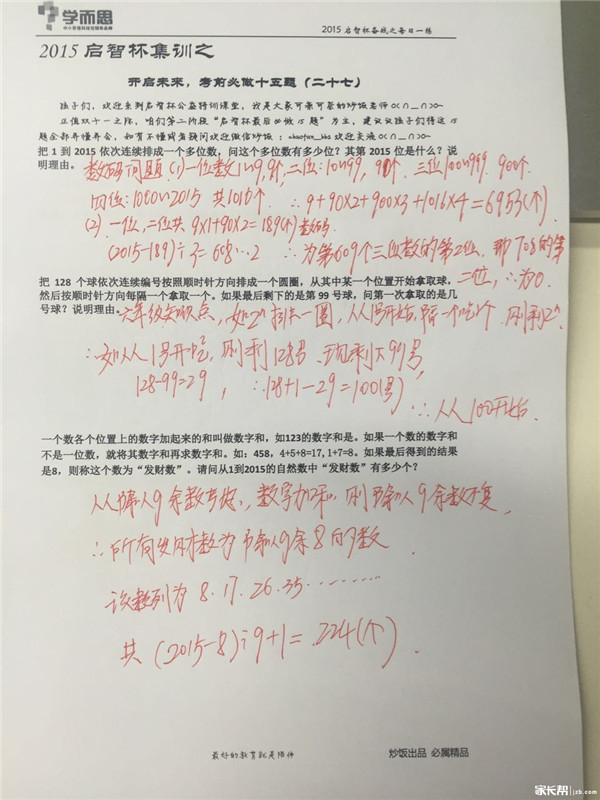 学而思
中小学课外辅导品牌
2015 启智杯备战之每日一练
2015 启智杯集训之
开启未来，考前必做十五题（二十七）
孩子们，欢迎来到启智杯公益特训课堂，我是大家可亲可爱的炒饭老师
正值双十一之际，咱们第二阶段“启智杯最后必做 15 题”为主，建议孩子们将这 15
题全部弄懂弄会，如有不懂或者疑问欢迎微信炒饭：chaofan_bbs 欢迎交流
把 1 到 2015 依次连续排成一个多位数，问这个多位数有多少位？其第 2015 位是什么？说
明理由。数码问题 (1)一位数1~9, 9个, 二位:10~99, 90个. 三位100~999. 900个.
四位:1000~2015 共1016个. ∴9+90×2+900×3+1016×4=6953(个)
(2). 一位,二位共 9×1+90×2=189(个)数码
(2015-189)÷3=608…2 ∴为第609个三位数的第2位. 即708的第
二位, ∴为0.
把 128 个球依次连续编号按照顺时针方向排成一个圆圈，从其中某一个位置开始拿取球，
然后按顺时针方向每隔一个拿取一个。如果最后剩下的是第 99 号球，问第一次拿取的是几
号球？说明理由。六年级知识点, 如2ⁿ排成一圈, 从1号开始, 隔一个吃1个, 则剩2ⁿ
∴如从1号开吃, 则剩128号. 现剩下99号,
128-99=29, ∴128+1-29=100(号)
∴从100开始.
一个数各个位置上的数字加起来的和叫做数字和，如123的数字和是。如果一个数的数字和
不是一位数，就将其数字和再求数字和。如：458，4+5+8=17, 1+7=8。如果最后得到的结果
是8，则称这个数为“发财数”。请问从1到2015的自然数中“发财数”有多少个？
从除以9余数考虑, 数字加和, 则除以9余数不变,
∴所有发财数为除以9余8的数
该数列为 8. 17. 26. 35. ………
共 (2015-8)÷9+1=224(个).
最好的教育就是陪伴
炒饭出品 必属精品
家长帮 jzb.com